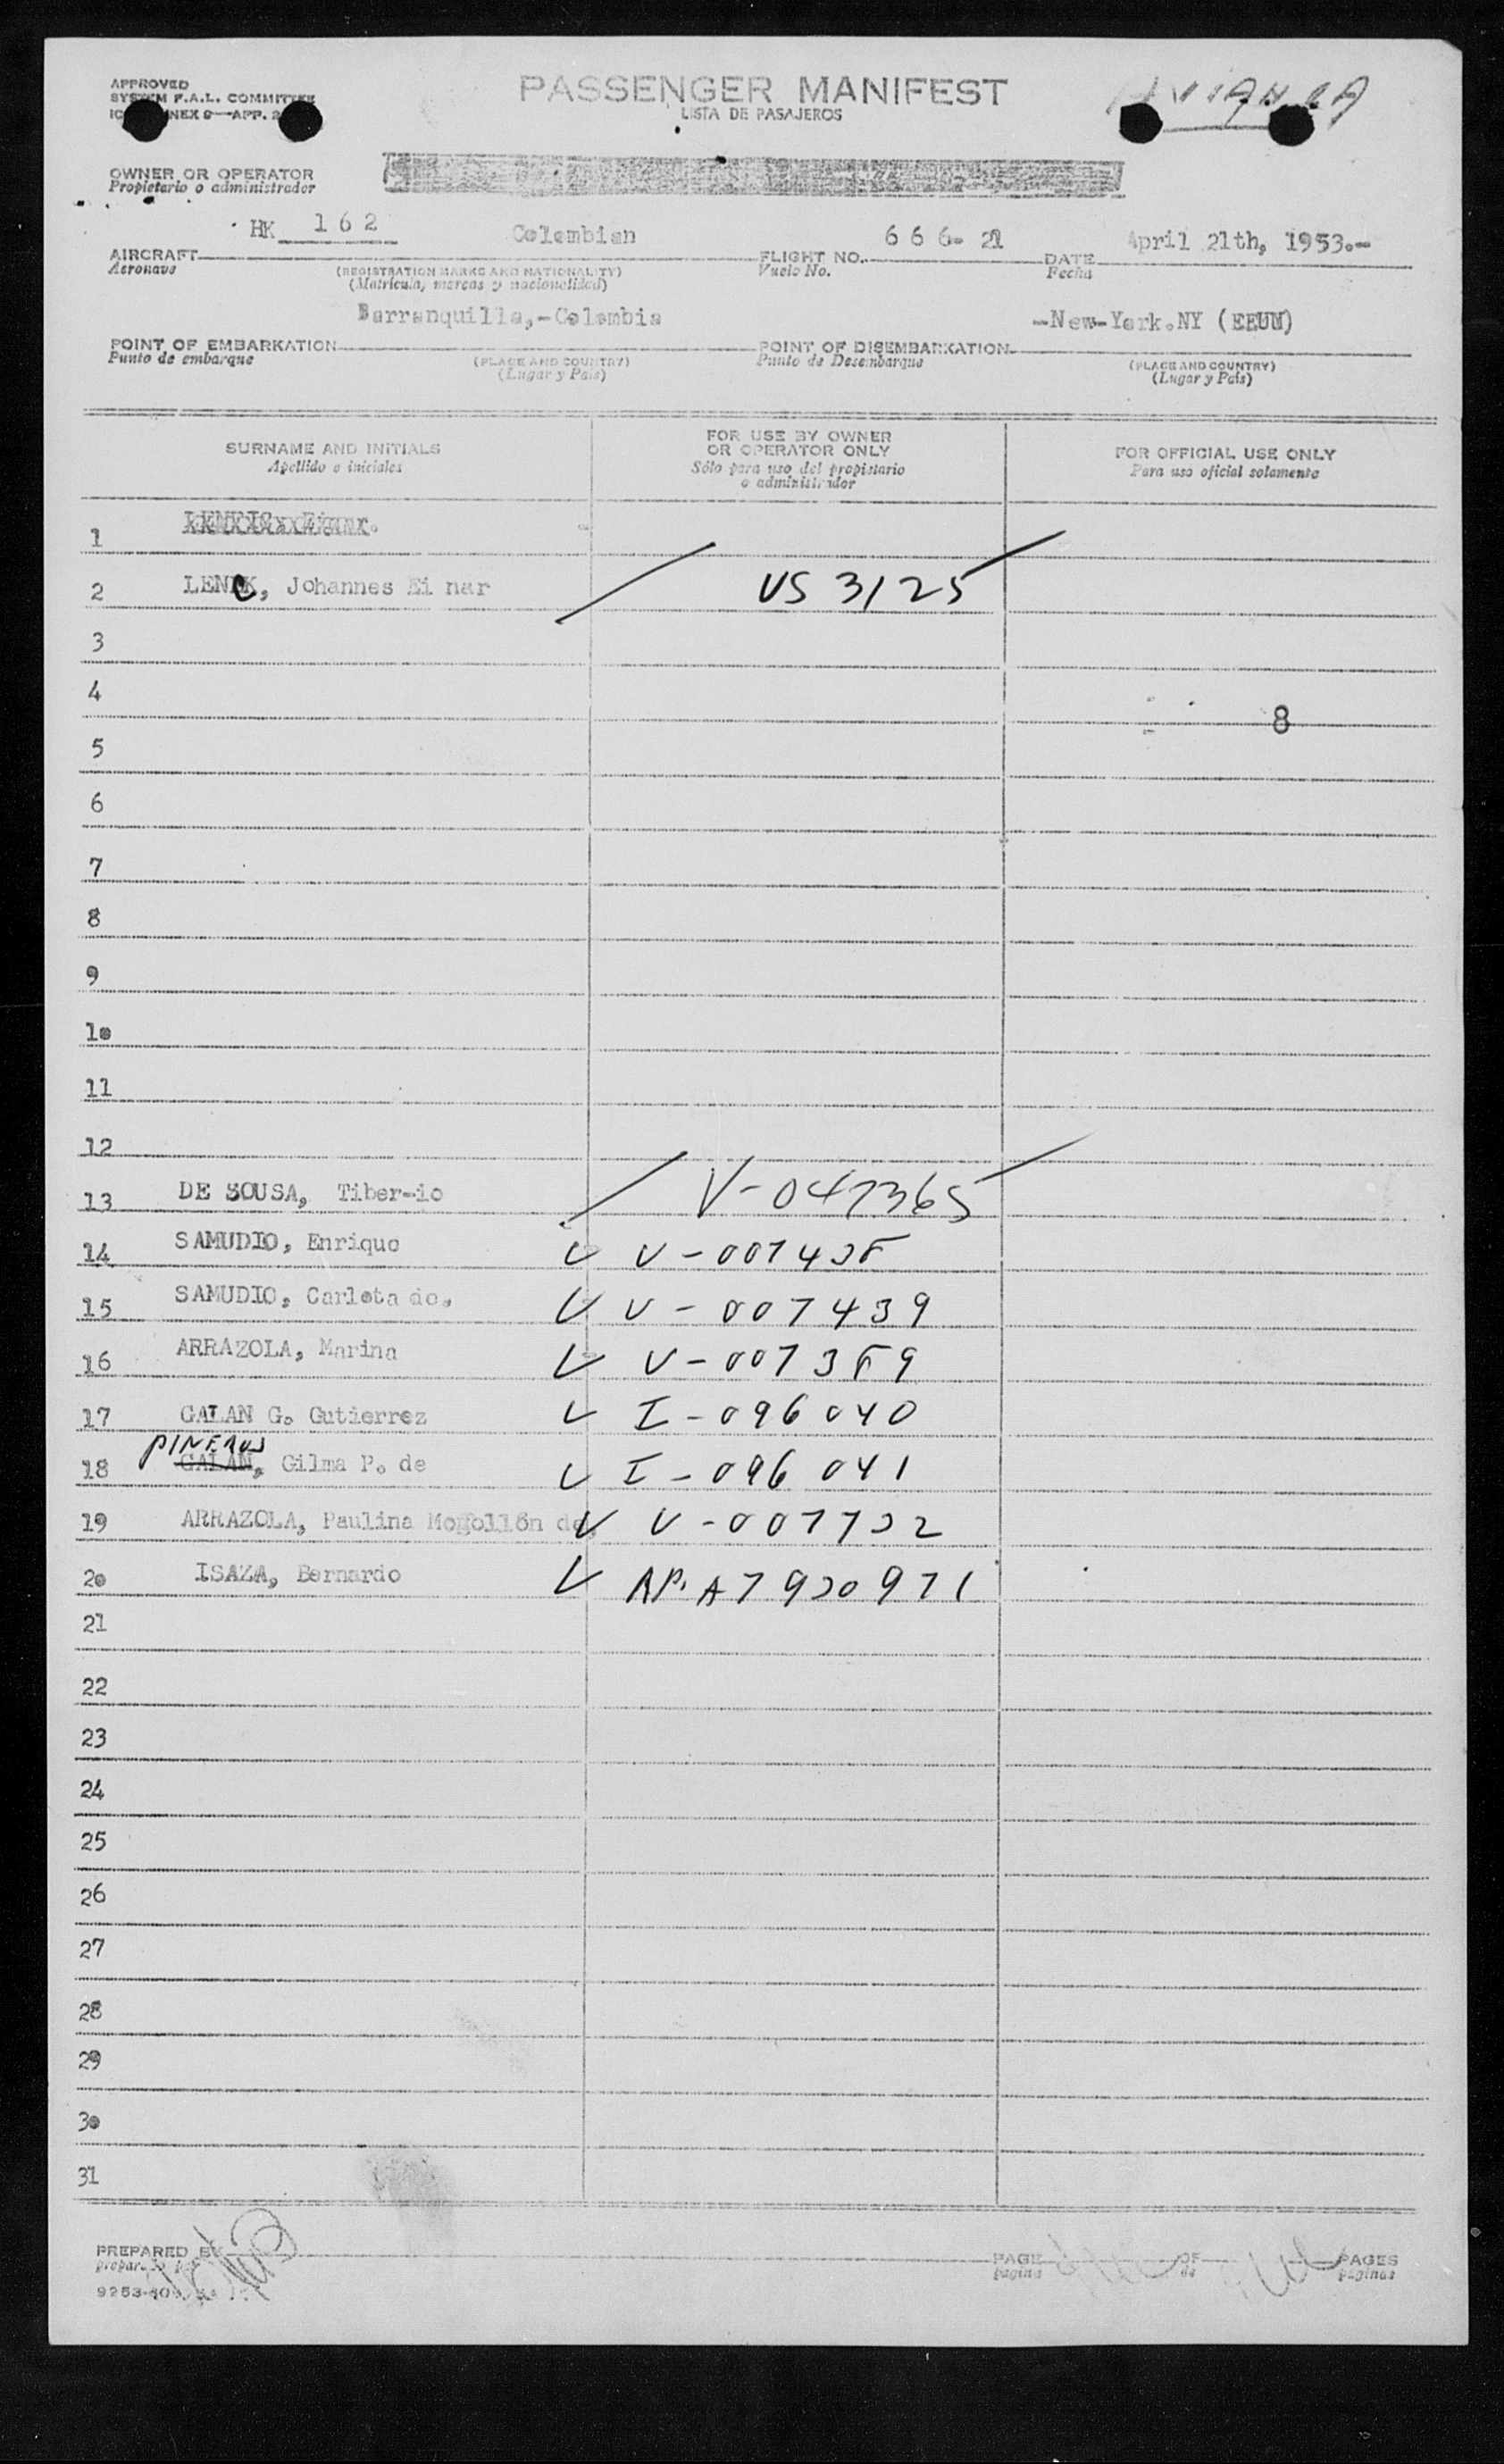 APPROVED
SYSTEM F.A.L. COMMITTEE
PASSENGER MANIFEST
LISTA DE PASAJEROS
AVIANCA
OWNER OR OPERATOR
Propietario o administrador
HK 162 Colombian 666- April 21th, 1953.-
AIRCRAFT FLIGHT NO. DATE
Aeronave (REGISTRATION MARKS AND NATIONALITY) Vuelo No. Fecha
(Matricula, marcas y nacionalidad)
Barranquilla,-Colombia -New-York.NY (EEUU)
POINT OF EMBARKATION POINT OF DISEMBARKATION
Punto de embarque (PLACE AND COUNTRY) Punto de Desembarque (PLACE AND COUNTRY)
(Lugar y País) (Lugar y País)
SURNAME AND INITIALS FOR USE BY OWNER OR OPERATOR ONLY FOR OFFICIAL USE ONLY
Apellido e iniciales Sólo para uso del propietario o administrador Para uso oficial solamente
1
2 LENCK, Johannes Ei nar VS 3125
3
4
8
5
6
7
8
9
10
11
12
13 DE SOUSA, Tiber-io V-047365
14 SAMUDIO, Enrique V-
15 SAMUDIO, Carlota de. V-007439
16 ARRAZOLA, Marina V-007359
17 GALAN G. Gutierrez I-096040
PINEROS
18 GALAN, Gilma P. de I-096041
19 ARRAZOLA, Paulina Mogollón de, V-
20 ISAZA, Bernardo AP. A7920971
21
22
23
24
25
26
27
28
29
30
31
PREPARED BY PAGE OF PAGES
página de páginas